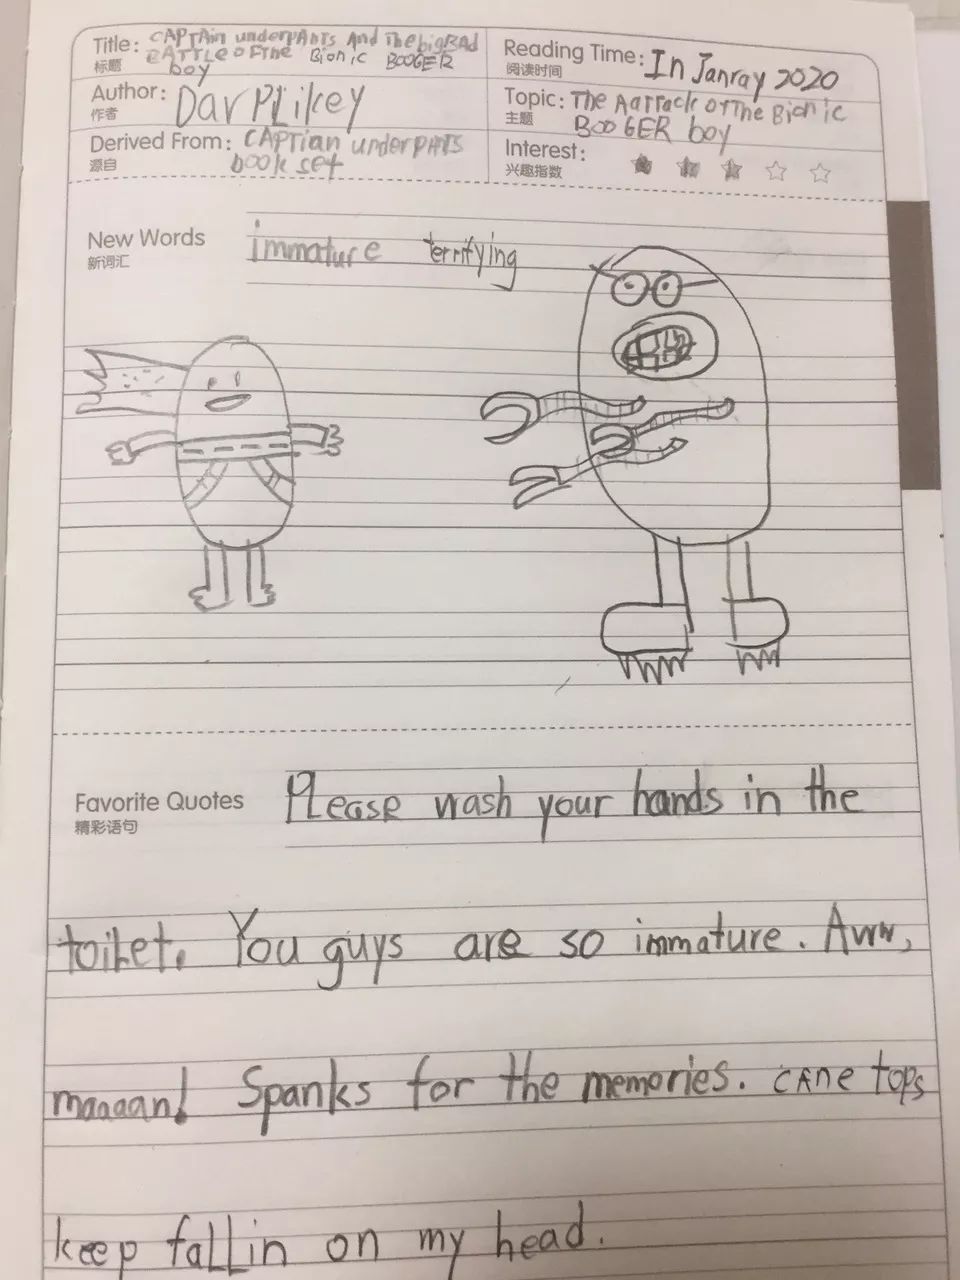 Title: CAPTAin underpANTs And The big BAd
标题 BATTLE OF the Bionic BOOGER
boy
Reading Time: In Janray 2020
阅读时间
Author: Dav PLikey
作者
Topic: The Aattack of The Bionic
主题 BOOGER boy
Derived From: CAPTian underpANTs
源自 book set
Interest:
兴趣指数
New Words immature terrifying
新词汇
Favorite Quotes PLease wash your hands in the
精彩语句
toiLet. You guys are so immature. Aww,
maaaan! Spanks for the memories. CANe tops
keep faLLin on my head.